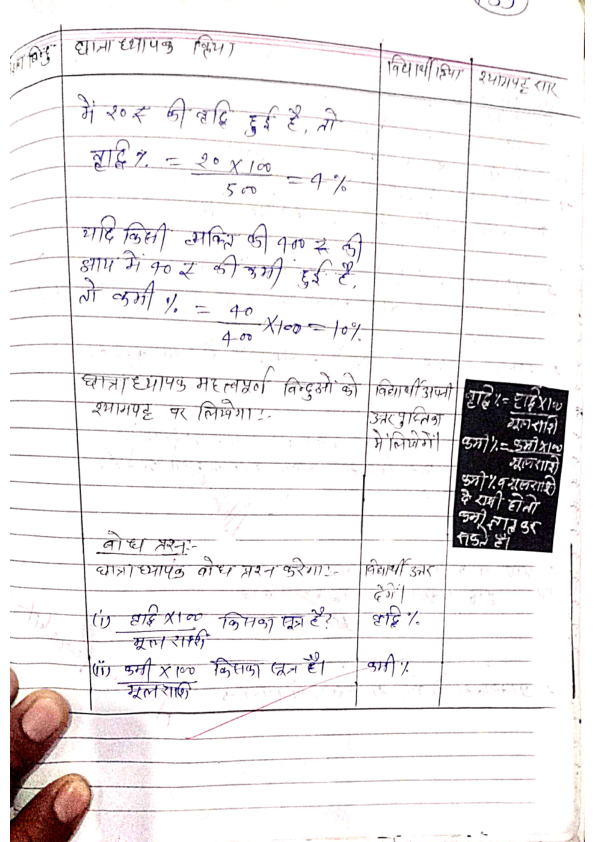 बिन्दु
छात्राध्यापक क्रिया
विद्यार्थी क्रिया
श्यामपट्ट सार
में २० रु की वृद्धि हुई है, तो
वृद्धि % = २० × 100 / 500 = 4 %
यदि किसी व्यक्ति की ४०० रु की
आय में ४० रु की कमी हुई है,
तो कमी % = 40 / 400 × 100 = 10 %
छात्राध्यापक महत्वपूर्ण बिन्दुओं को
श्यामपट्ट पर लिखेगा :-
विद्यार्थी अपनी
उत्तर पुस्तिका
में लिखेगें।
वृद्धि % = वृद्धि × 100 / मूलराशि
कमी % = कमी × 100 / मूलराशि
कमी % व मूलराशि
दे रखी हो तो
कमी ज्ञात कर
सकते हैं।
बोध प्रश्न :-
छात्राध्यापक बोध प्रश्न करेगा :-
विद्यार्थी उत्तर
देगें।
(i) वृद्धि × 100 / मूल राशि किसका सूत्र है?
वृद्धि %
(ii) कमी × 100 / मूलराशि किसका सूत्र है।
कमी %